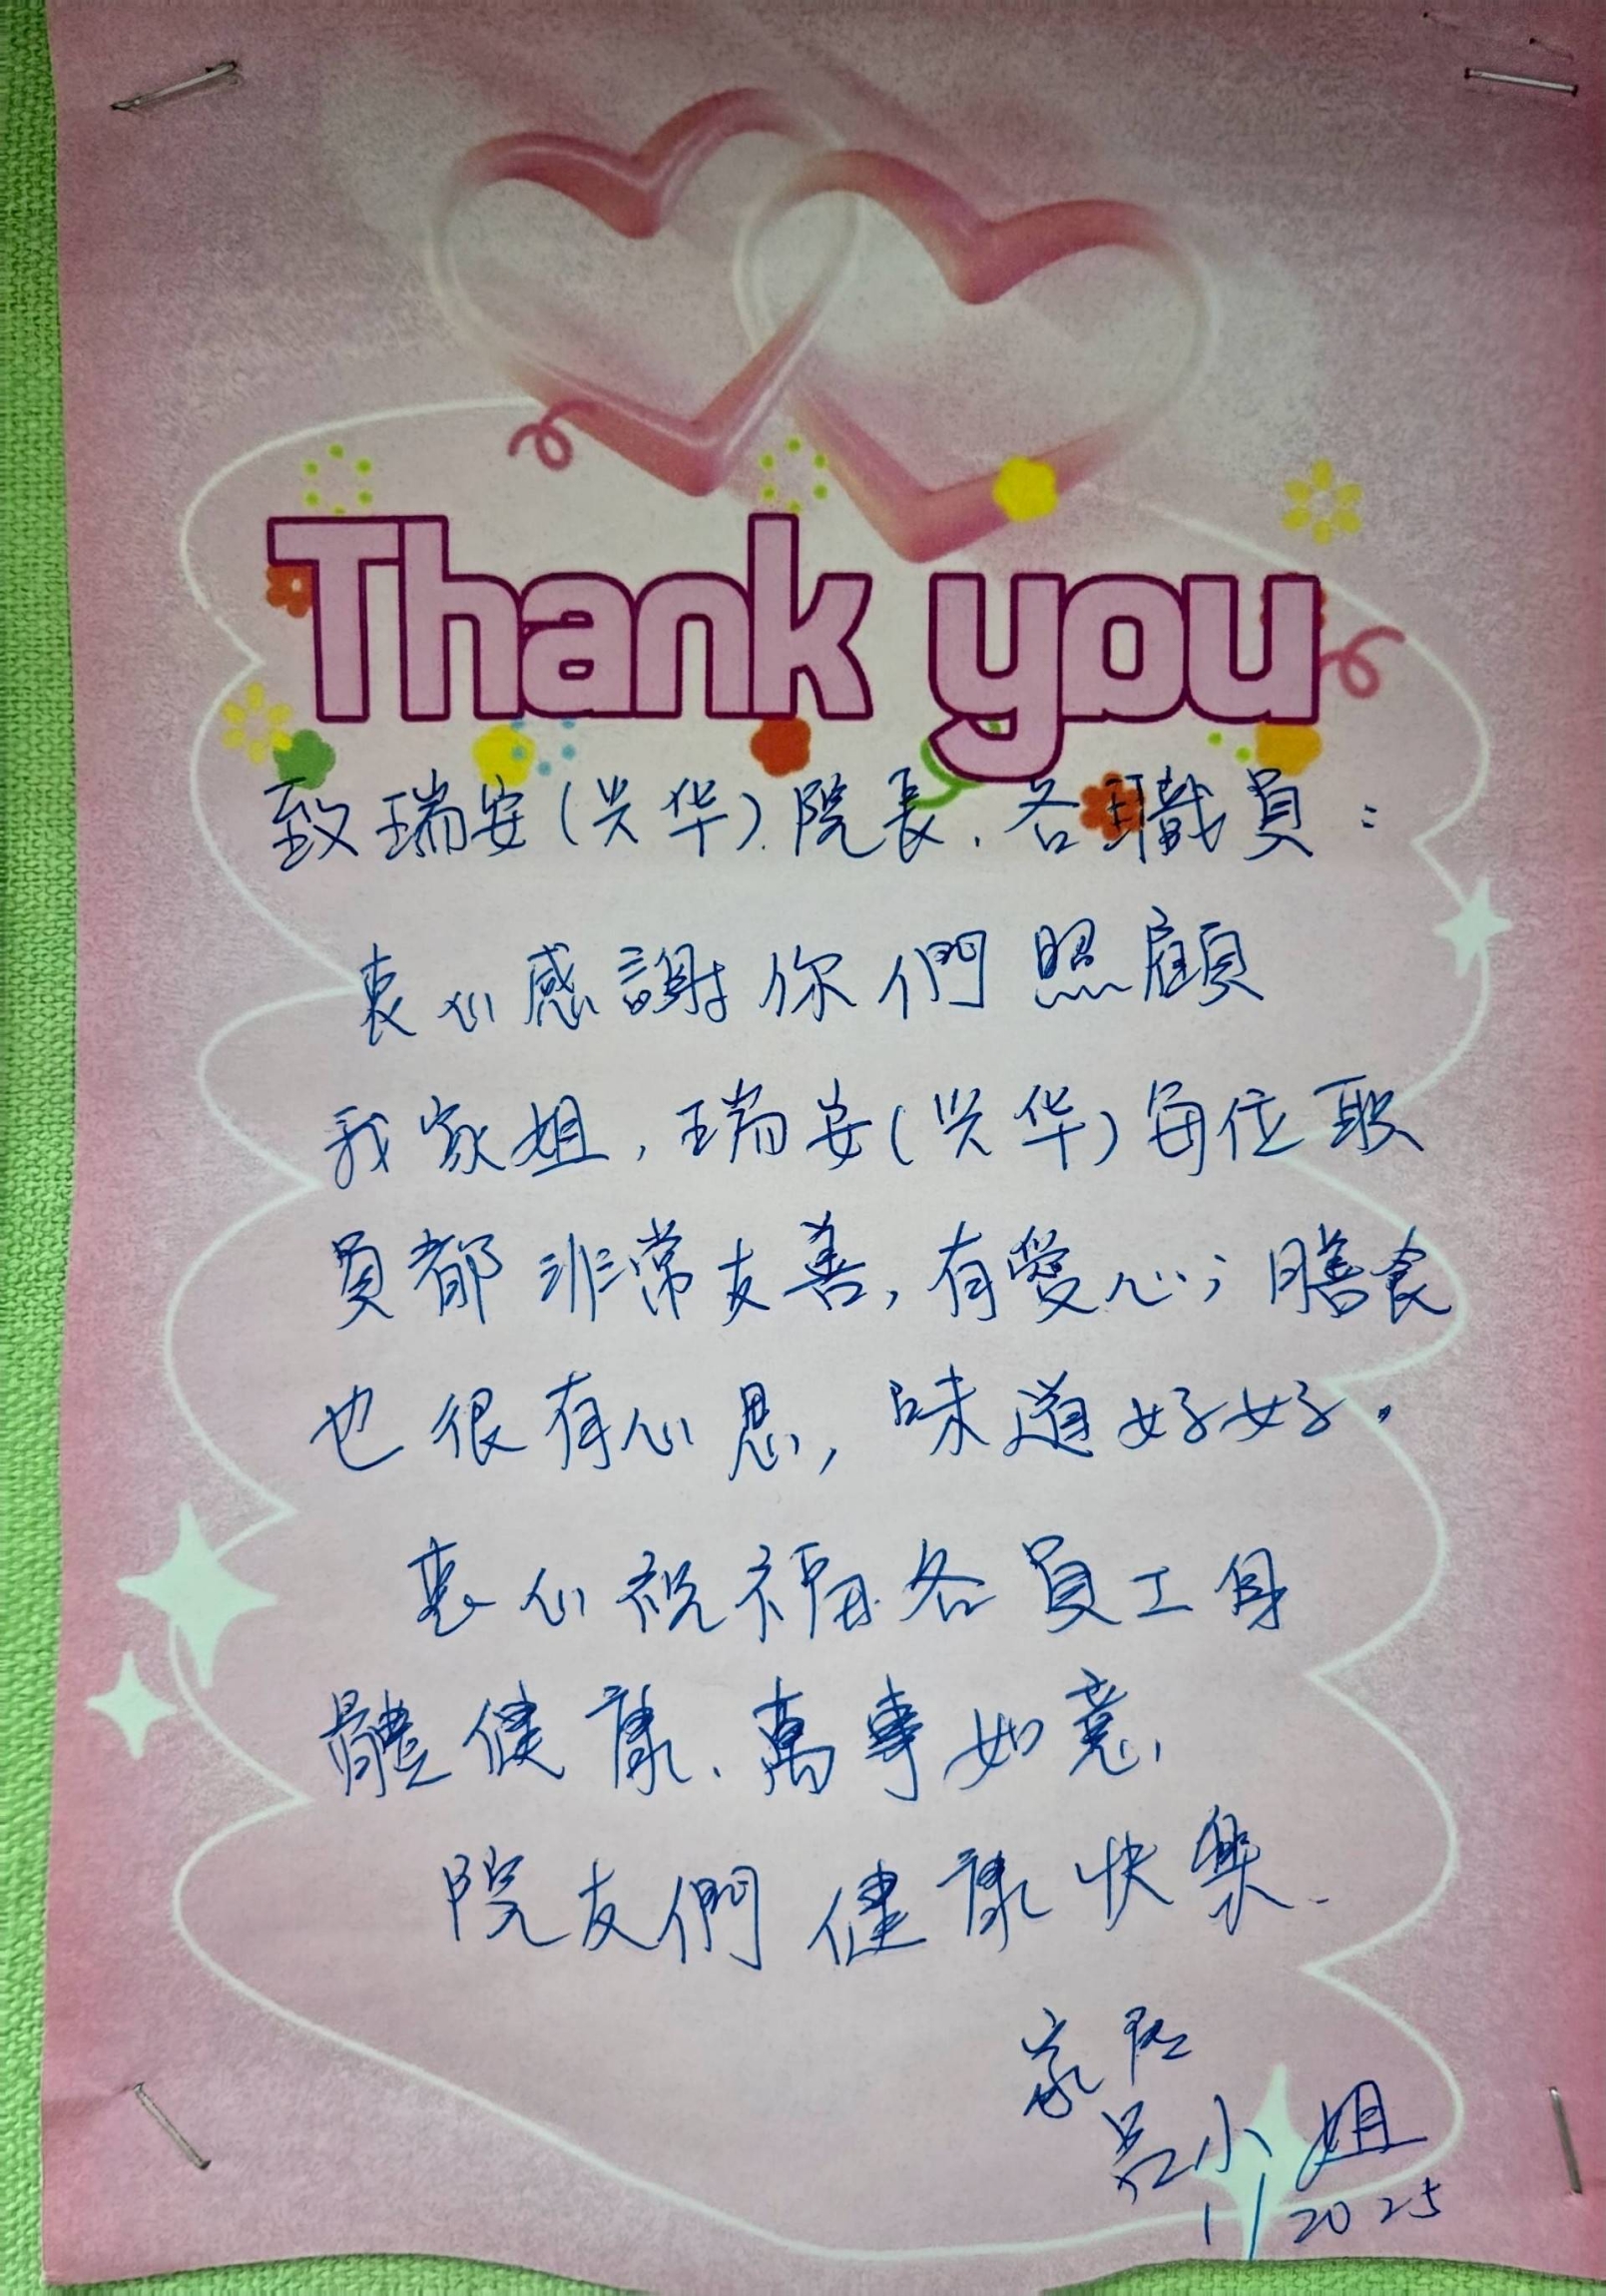 Thank you
致瑞安(兴华)院長、各職員：
衷心感謝你們照顧
我家姐，瑞安(兴华)每位职
員都非常友善，有愛心；膳食
也很有心思，味道好好。
衷心祝福各員工身
體健康、萬事如意、
院友們健康快樂.
家屬
吳小姐
1/2025